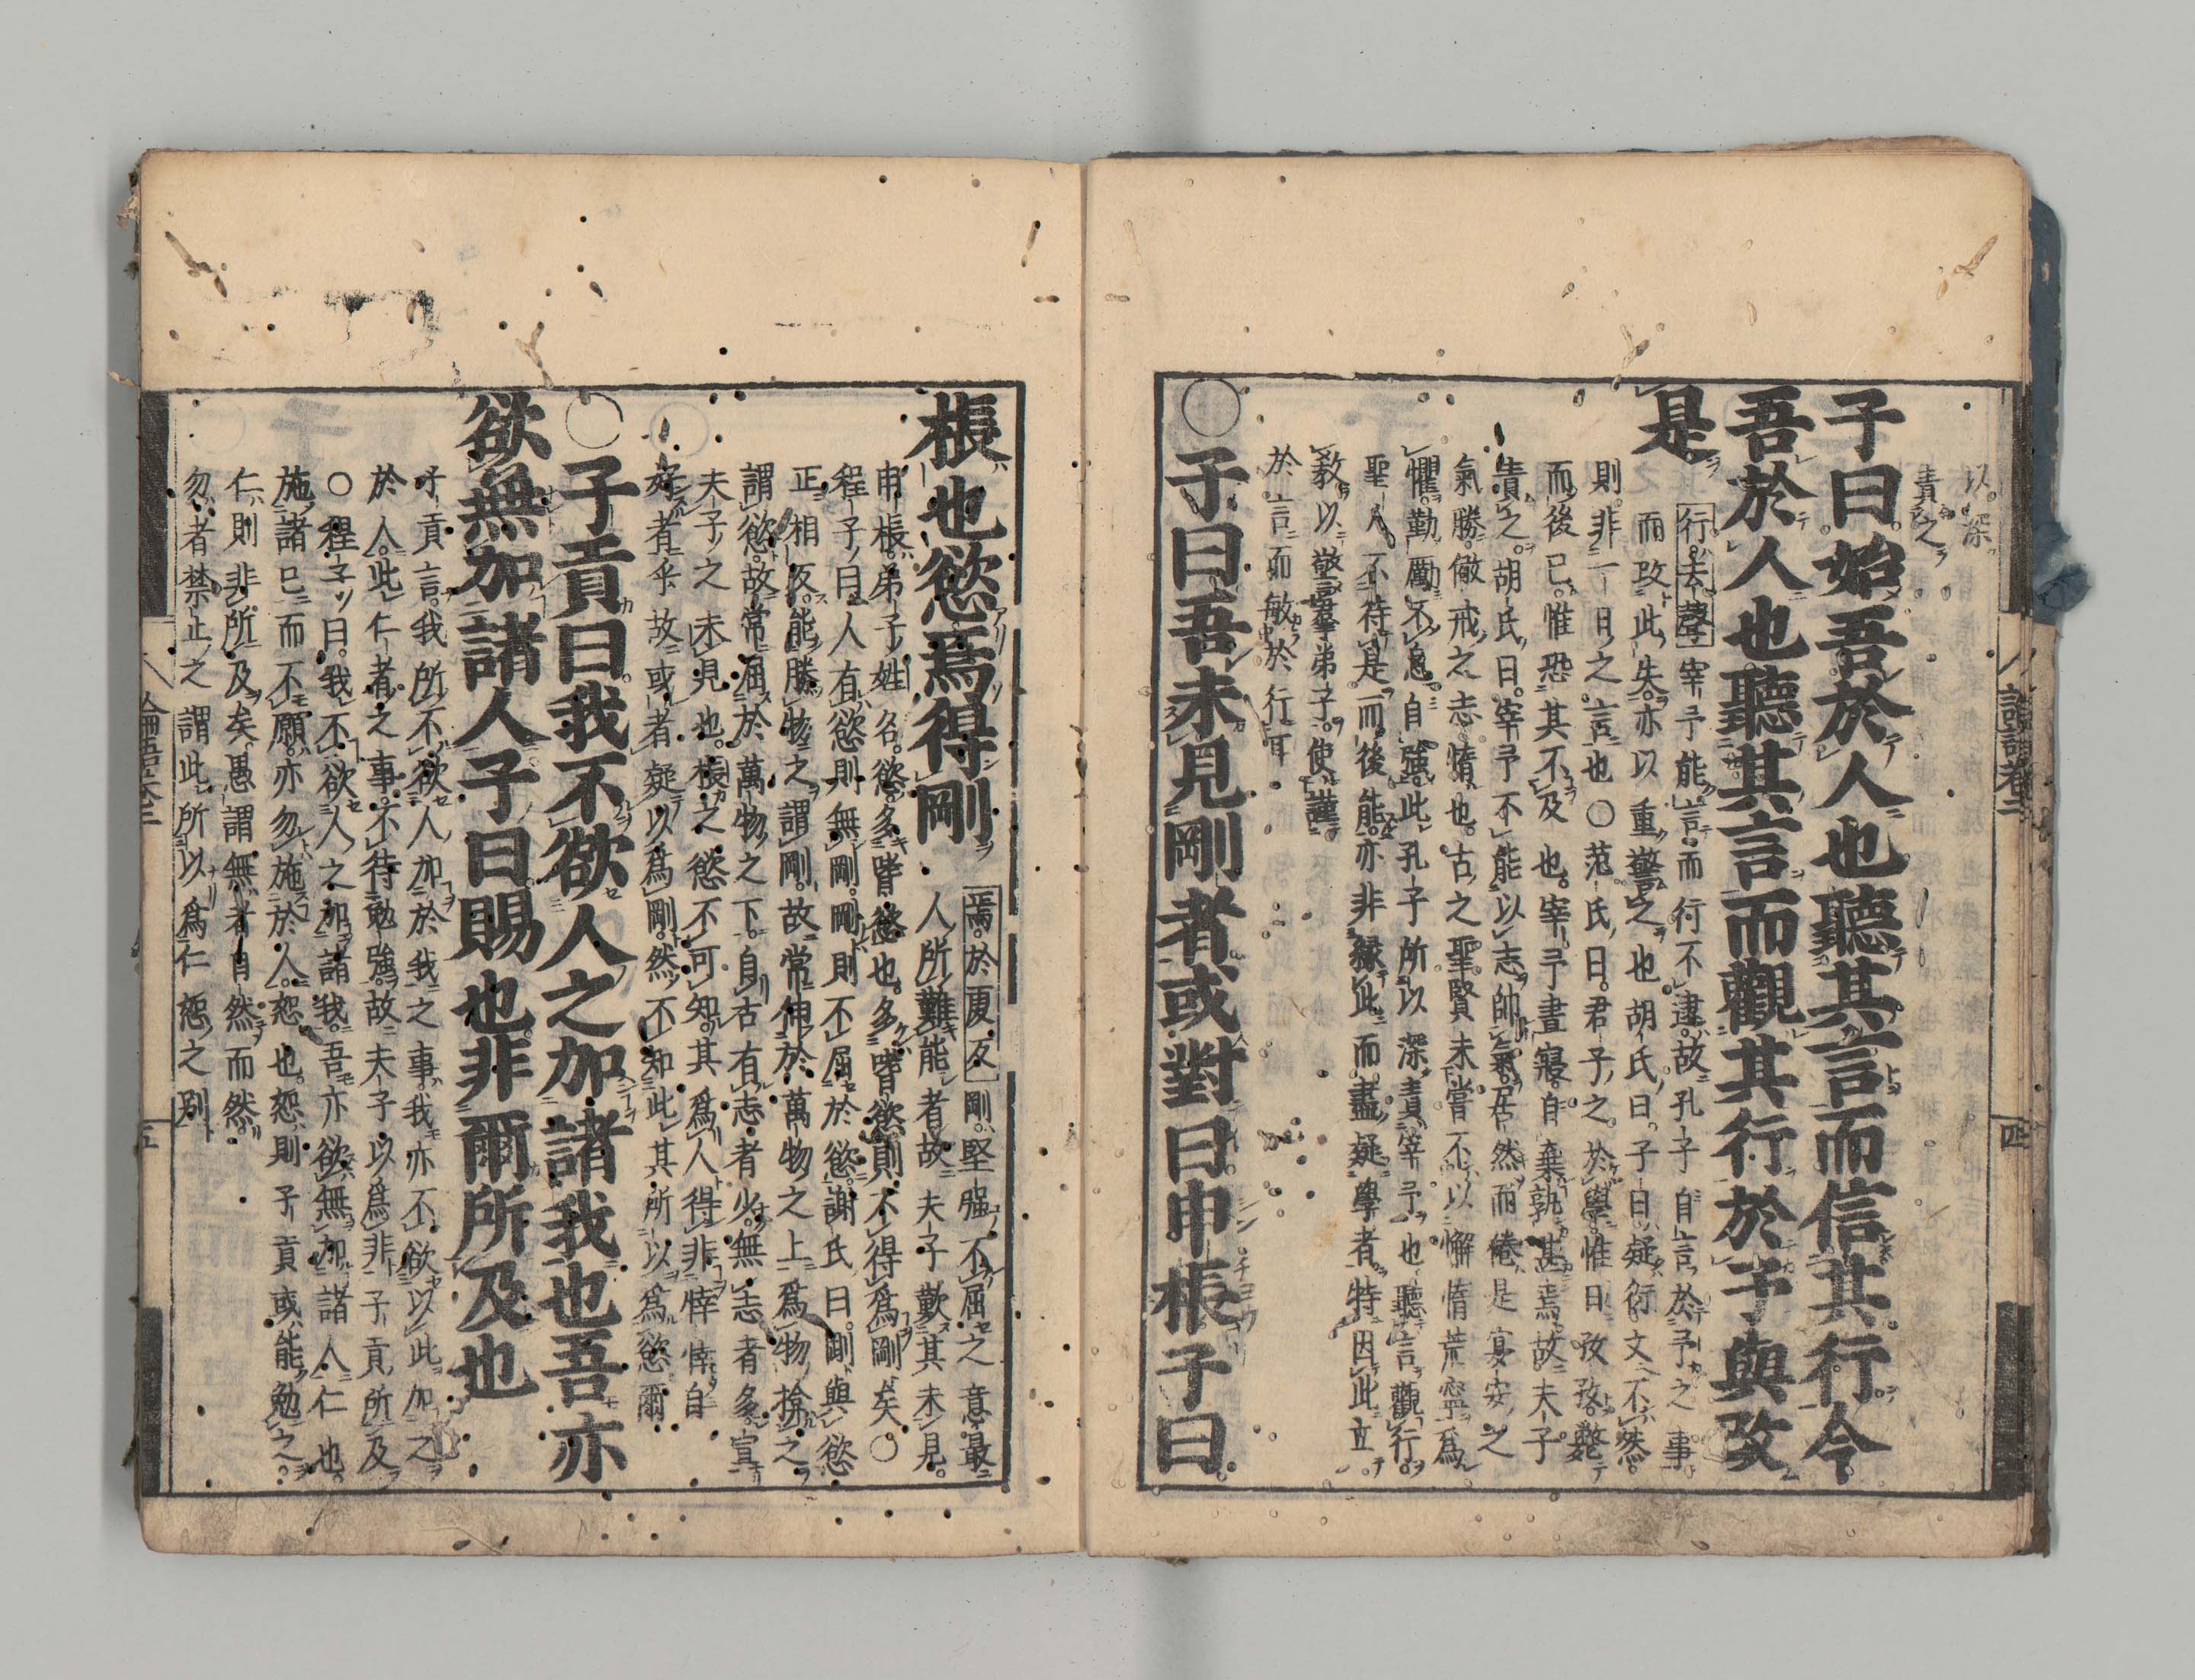 以深
責之
子曰始吾於人也聽其言而信其行今
吾於人也聽其言而觀其行於予與改
是
行去聲宰予能言而行不逮故孔子自言於予之事
而改此失亦以重警之也胡氏曰子曰疑衍文不然
則非一日之言也○范氏曰君子之於學惟日孜孜斃
而後已惟恐其不及也宰予晝寢自棄孰甚焉故夫子
責之胡氏曰宰予不能以志帥氣居然而倦是宴安之
氣勝儆戒之志惰也古之聖賢未嘗不以懈惰荒寧爲
懼勤勵不息自強此孔子所以深責宰予也聽言觀行
聖人不待是而後能亦非緣此而盡疑學者特因此立
教以警羣弟子使謹
於言而敏於行耳
○子曰吾未見剛者或對曰申棖子曰
論語卷三
四
棖也慾焉得剛
焉於虔反剛堅强不屈之意最
人所難能者故夫子歎其未見
申棖弟子姓名慾多嗜慾也多嗜慾則不得爲剛矣○
程子曰人有慾則無剛剛則不屈於慾謝氏曰剛與慾
正相反能勝物之謂剛故常伸於萬物之上爲物揜之
謂慾故常屈於萬物之下自古有志者少無志者多宜
夫子之未見也棖之慾不可知其爲人得非悻悻自
好者乎故或者疑以爲剛然不知此其所以爲慾爾
○子貢曰我不欲人之加諸我也吾亦
欲無加諸人子曰賜也非爾所及也
子貢言我所不欲人加於我之事我亦不欲以此加之
於人此仁者之事不待勉強故夫子以爲非子貢所及
○程子曰我不欲人之加諸我吾亦欲無加諸人仁也
施諸己而不願亦勿施於人恕也恕則子貢或能勉之
仁則非所及矣愚謂無者自然而然
勿者禁止之謂此所以爲仁恕之別
論語卷三
五